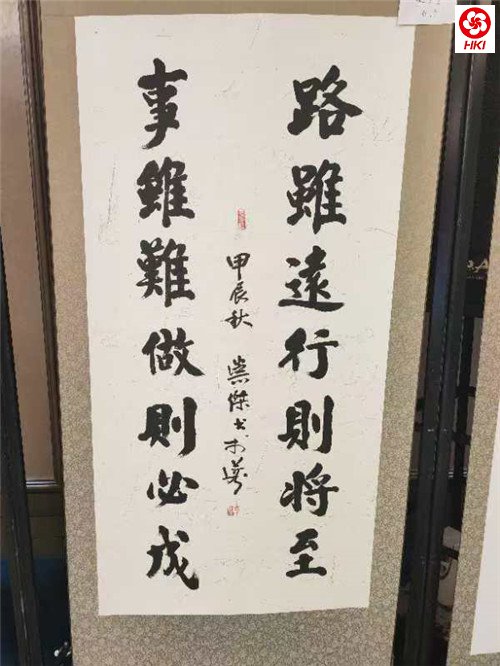 路雖遠行則將至
事雖難做則必成
甲辰秋 崇傑書於
HKI